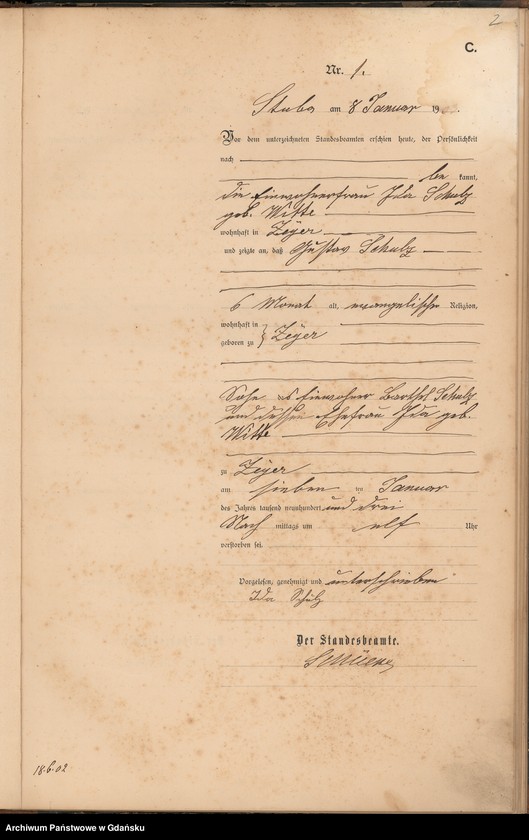 2
C.
Nr. 1.
Stuba am 8 Januar 19
Vor dem unterzeichneten Standesbeamten erschien heute, der Persönlichkeit
nach
be kannt,
die Einwohnerfrau Ida Schulz
geb. Witte
wohnhaft in Zeyer
und zeigte an, daß Gustav Schulz
6 Monat alt, evangelischer Religion,
wohnhaft in
geboren zu } Zeyer
Sohn des Einwohner Barthel Schulz
und dessen Ehefrau Ida geb.
Witte
zu Zeyer
am sieben ten Januar
des Jahres tausend neunhundert und drei
Nach mittags um elf Uhr
verstorben sei.
Vorgelesen, genehmigt und unterschrieben
Ida Schulz
Der Standesbeamte.
18.6.02
Archiwum Państwowe w Gdańsku